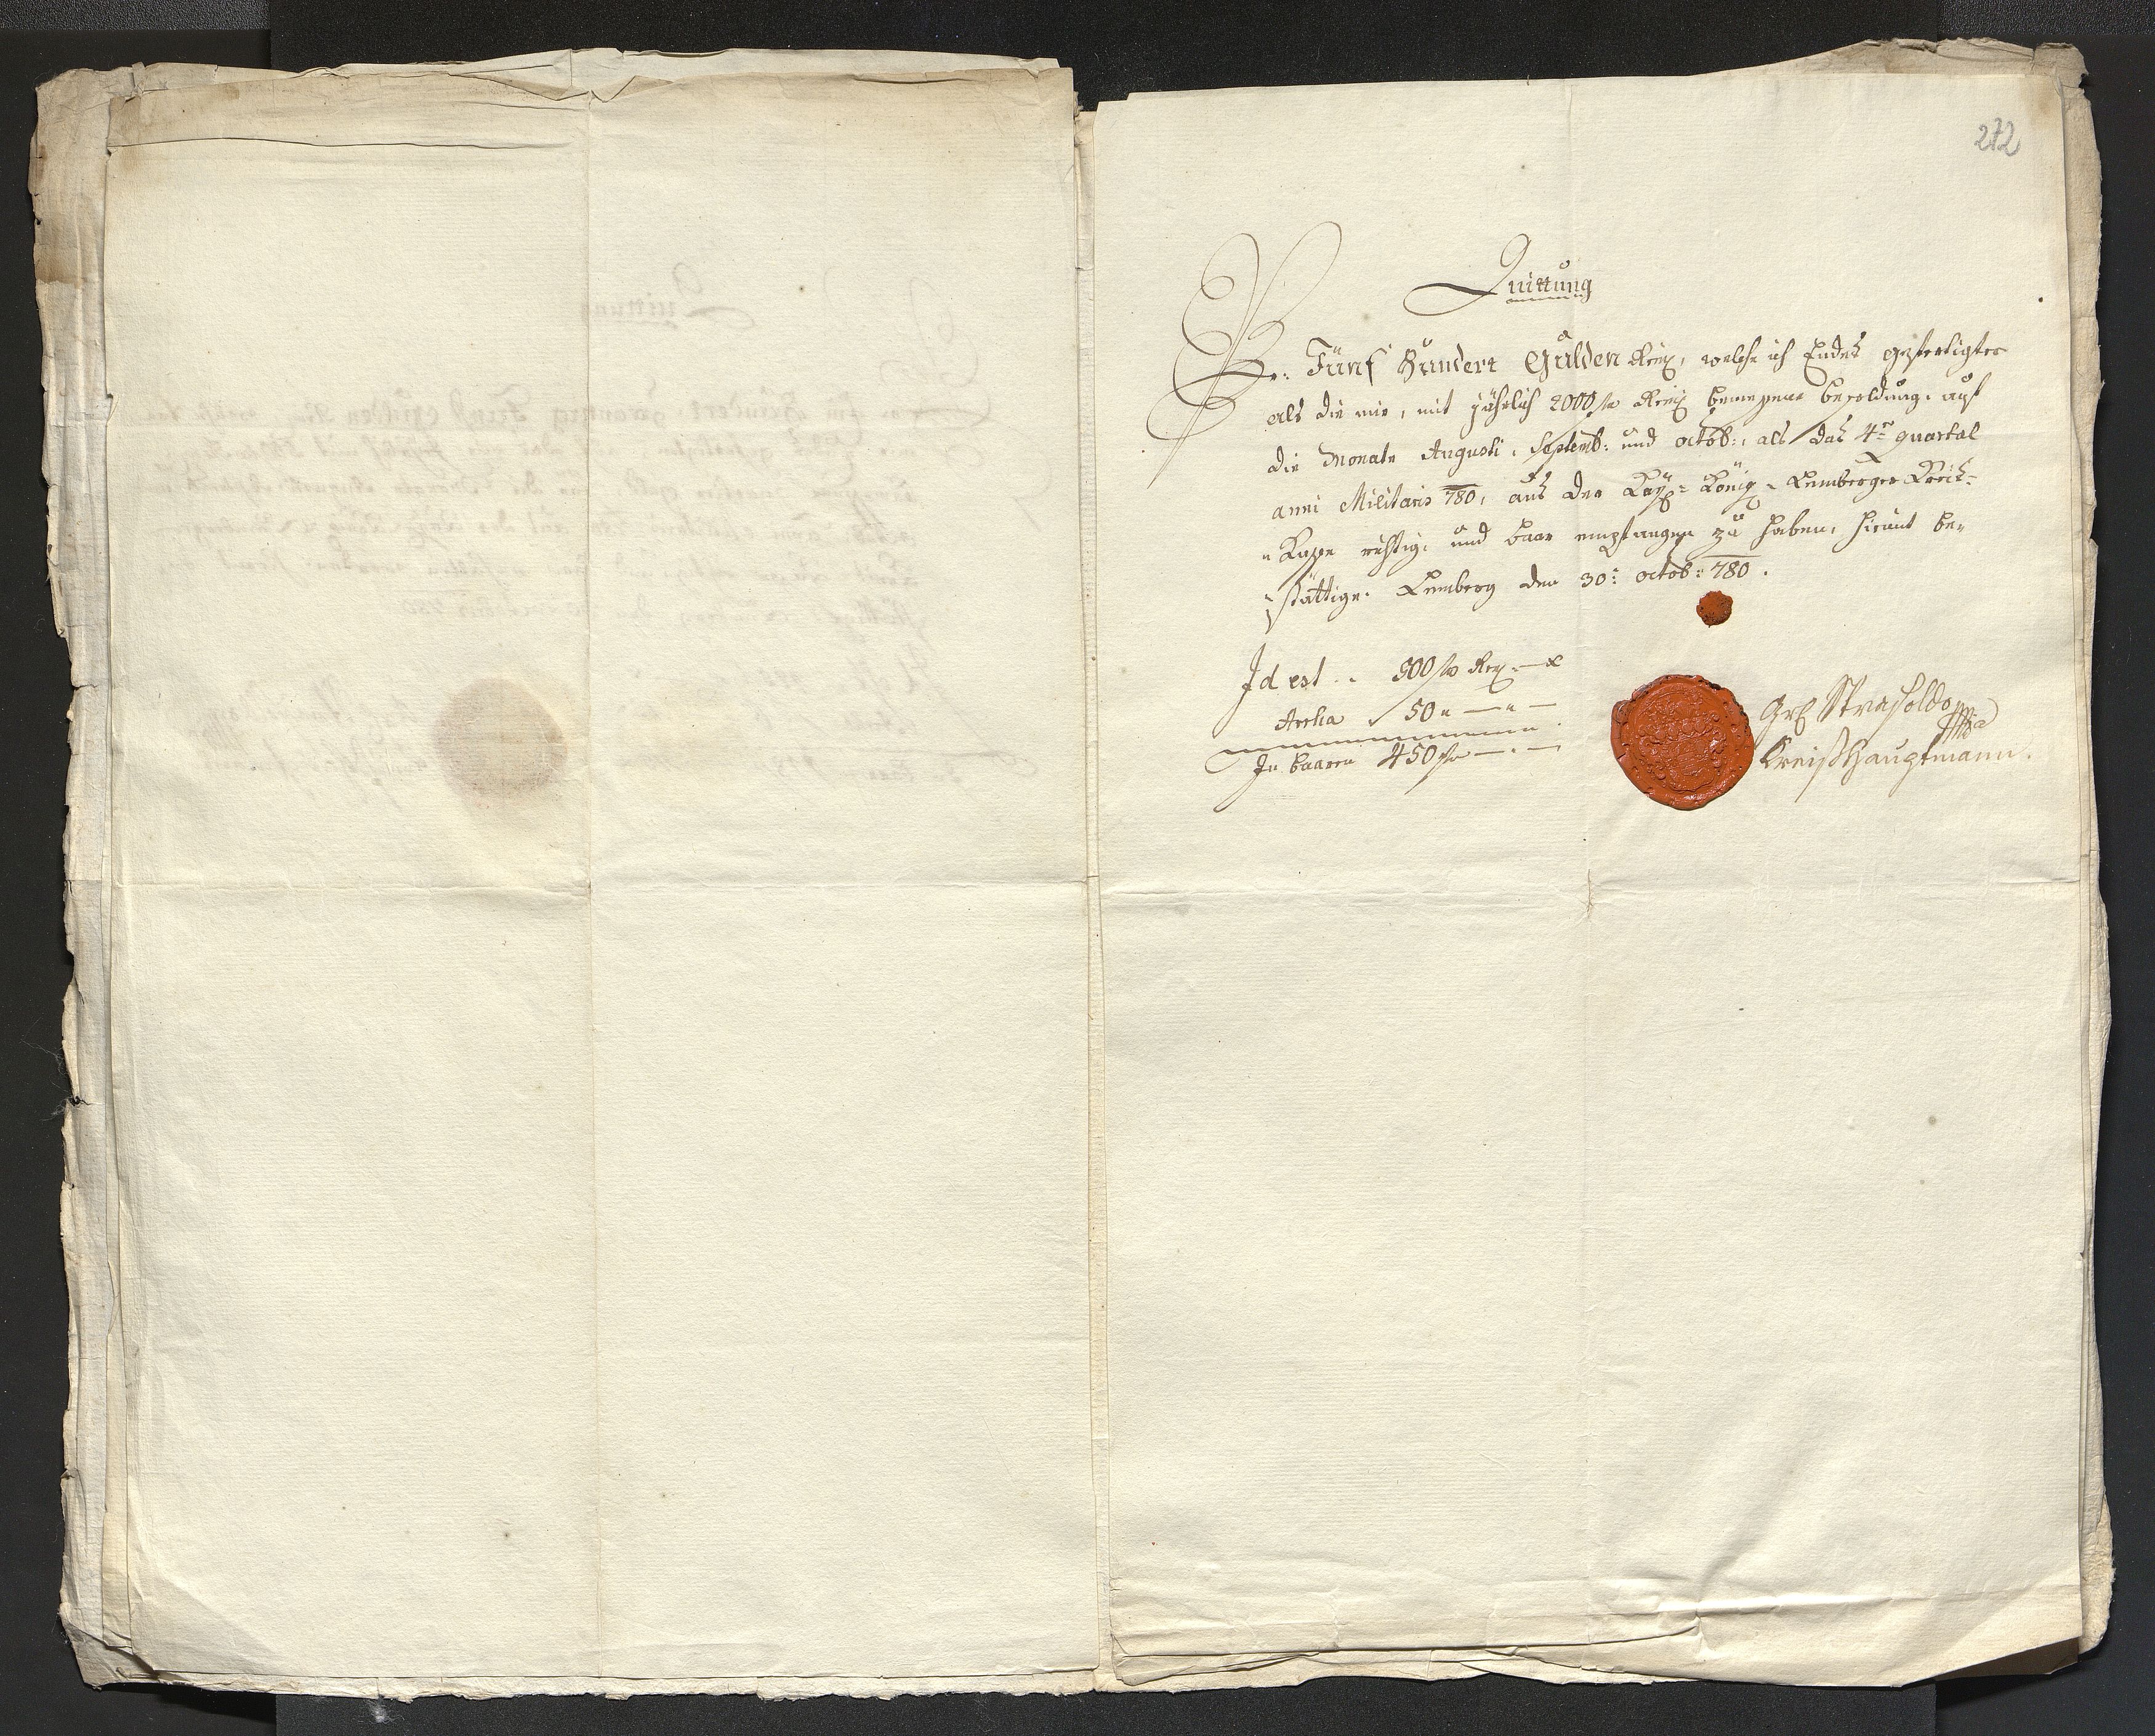 272
Quittung
Pr: Fünf Hundert Gulden Reiß, welche ich Endes gefertigter
als die mir, mit jährlich 2000 fl Reiß bemeßene besoldung, auf
die Monate Augusti, Septemb: und octob:, als das 4te quartal
anni Militaris 780, aus der Kayß= Königl= Lemberger Kreis=
=Kasse richtig, und baar empfangen zu haben, hiemit be=
=stättige. Lemberg den 30: octob: 780.
Id est .. 500 fl Reiß - x
Arrha " 50 " — " —
In baaren 450 fl — " —
Grf Strasoldo
Kreißhauptmann.